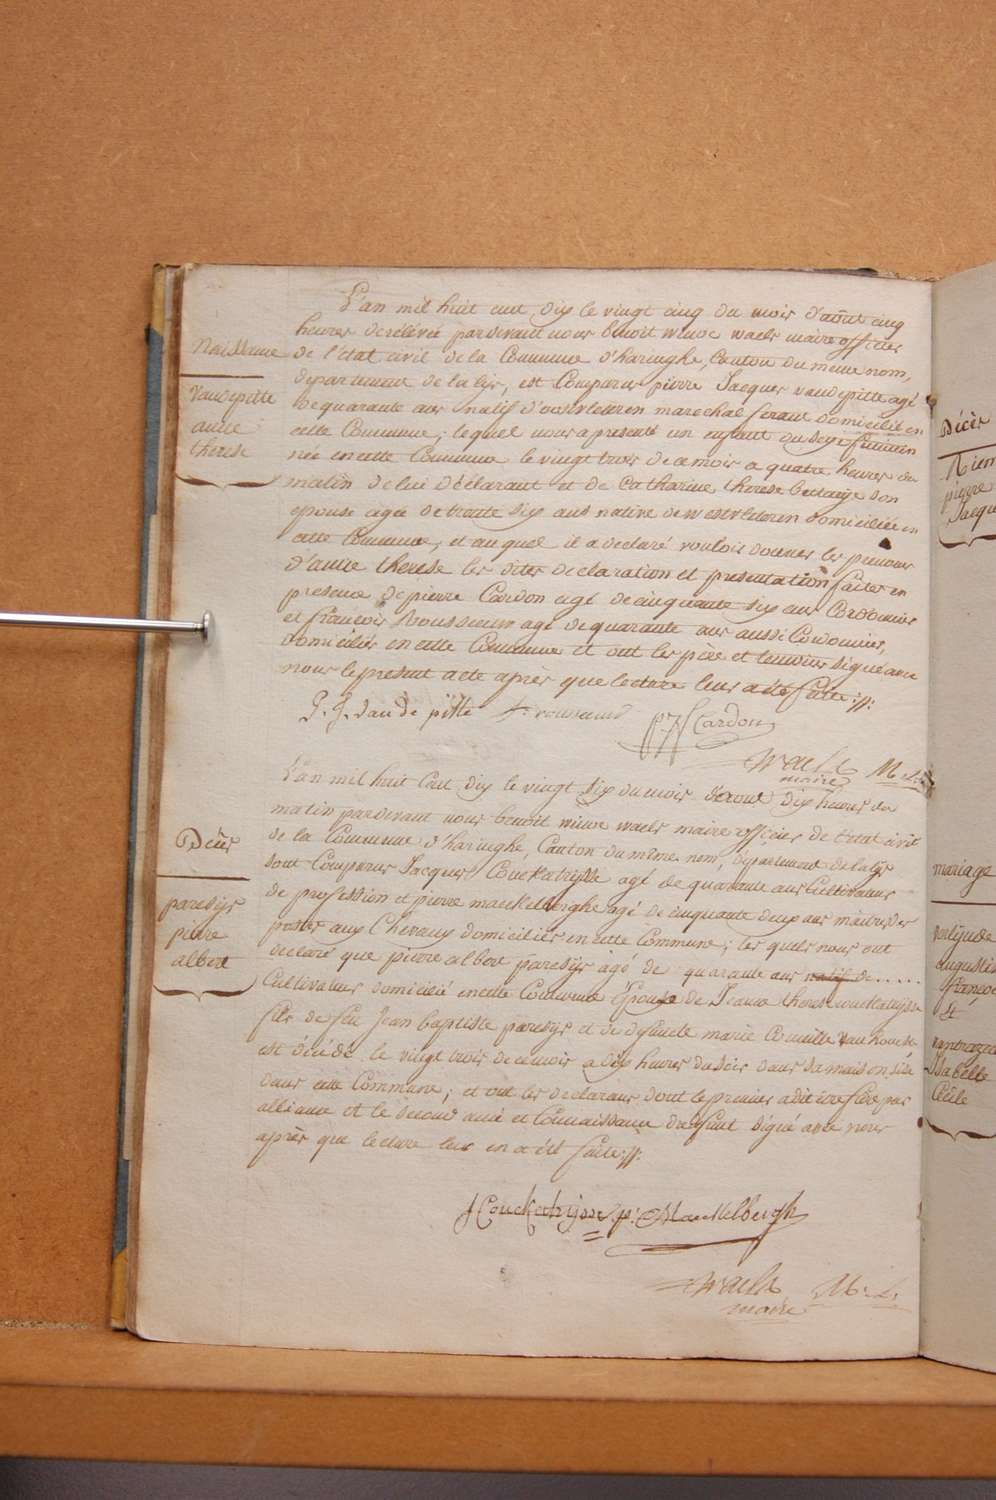 L'an mil huit cent dix le vingt cinq du mois d'août cinq
heures de rélévée pardevant nous benoit winoc waels maire officier
Naissance
de l'état civil de la Commune d'haringhe, Canton du même nom,
departement de la lijs, est Comparus pierre Jacques vandepitte agé
Vandepitte
de quarante ans natif d'oostvleteren marechal ferant domicilié en
anne
cette Commune; lequel nous a presenté un enfant du sexe feminin
therese
née en cette Commune le vingt trois de ce mois a quatre heures du
matin de lui déclarant et de Catharine therese son
epouse agée de trente six ans native de westvleteren domiciliée en
cette Commune, et auquel il a declaré vouloir donner les prenoms
d'anne therese les dites declaration et presentation faites en
presence de pierre Cardon agé de cinquante six ans Cordonnier
et françois agé de quarante ans aussi Cordonnier,
domiciliés en cette Commune et ont les père et temoins signé avec
nous le present acte après que lecture leur a été faite.//.
P. J. Van de pitte Cardon
Waels M.
maire
L'an mil huit Cent dix le vingt six du mois d'aout dix heures du
matin pardevant nous benoit winoc waels maire officier de l'etat civil
Décès
de la Commune d'haringhe, Canton du même nom, département de la lijs
sont Comparus Jacques Couckatrysse agé de quarante ans Cultivateur
paresijs
de profession et pierre maeckelberghe agé de cinquante deux ans maitre des
pierre
postes aux Chevaux domiciliés en cette Commune; les quels nous ont
albert
declaré que pierre albert paresijs agé de quarante ans natif de.....
Cultivateur domicilié en cette Commune Epoux de Jeanne therese
fils de feu Jean baptiste paresijs et de marie
est décédé le vingt trois de ce mois a dix heures du soir dans sa maison, sise
dans cette Commune; et ont les declarans dont le premier a dit être frère par
alliance et le second ami et Connaissance du defunt signé avec nous
après que lecture leur en a été faite.//.
J Couckatrijsse p: Maeckelbergh
Waels M.
maire
Décès
pierre
Jacque
mariage
augustin
françoi
et
Isabelle
Cécile